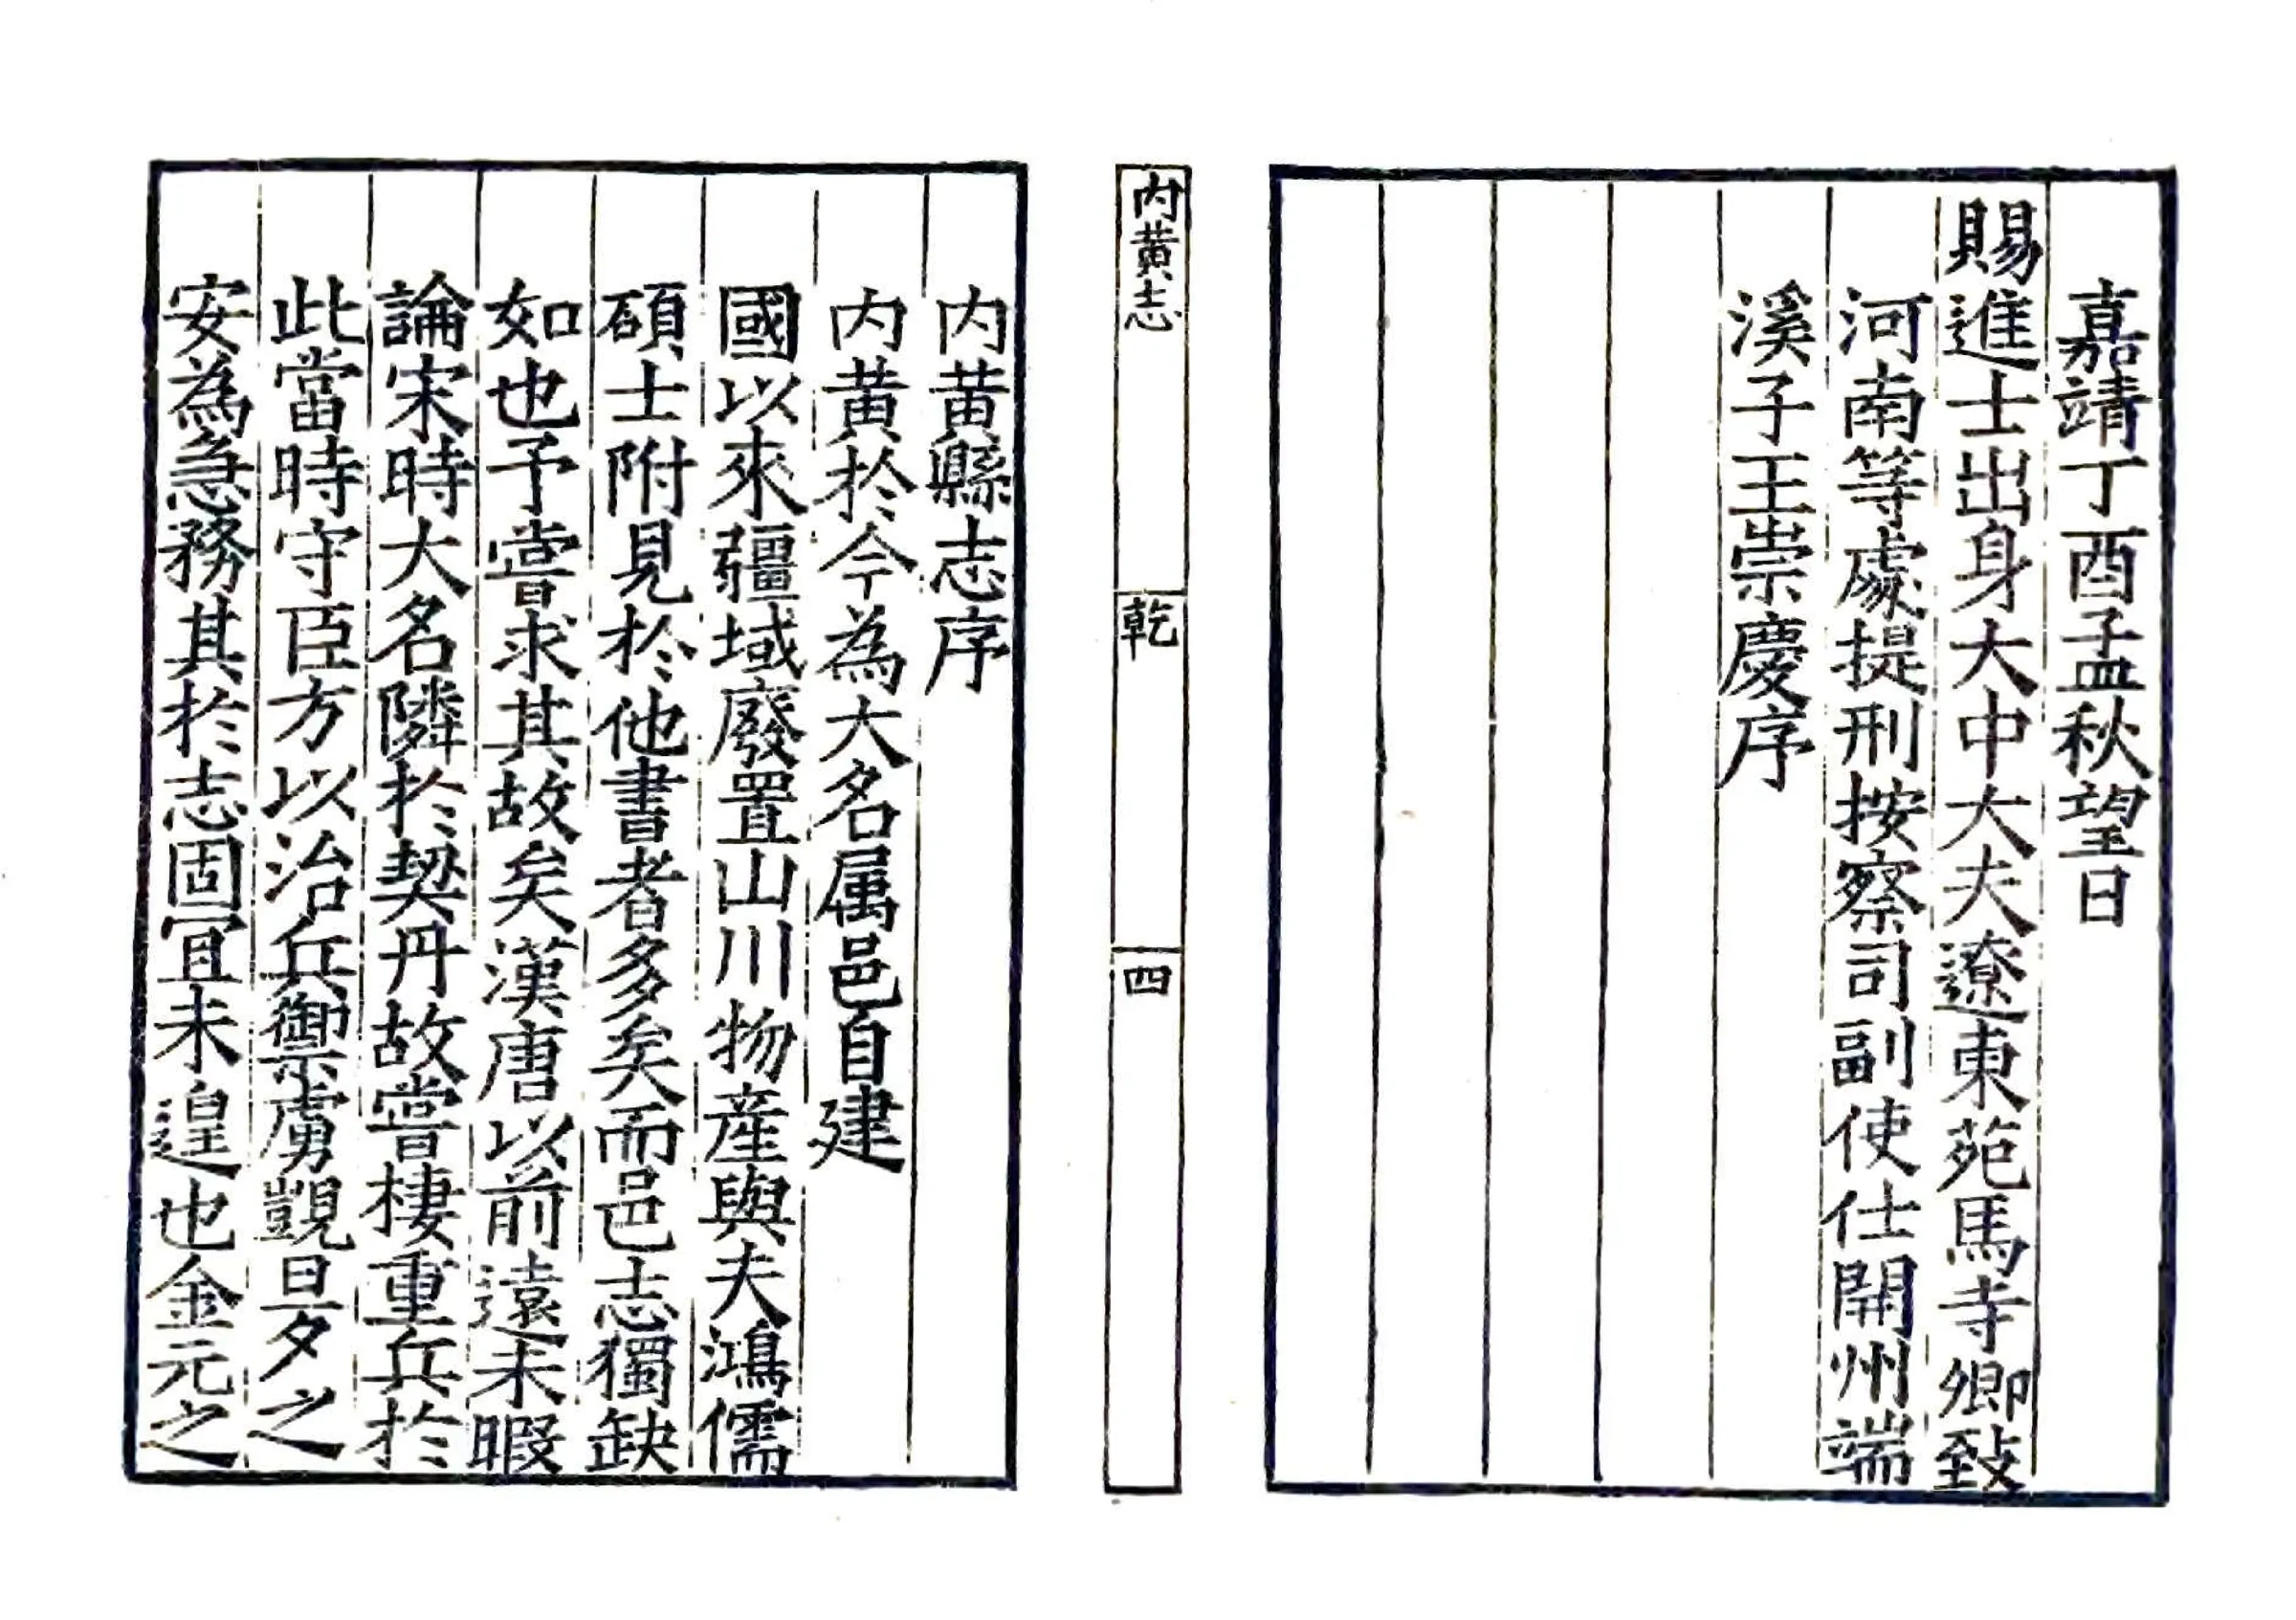 嘉靖丁酉孟秋望日
賜進士出身大中大夫遼東苑馬寺卿致
河南等處提刑按察司副使仕開州端
溪子王崇慶序
内黄志
乾
四
内黄縣志序
内黄於今為大名属邑自建
國以來疆域廢置山川物産與夫鴻儒
碩士附見於他書者多矣而邑志獨缺
如也予嘗求其故矣漢唐以前遠未暇
論宋時大名隣於契丹故嘗棲重兵於
此當時守臣方以治兵禦虜覬旦夕之
安為急務其於志固冝未遑也金元之